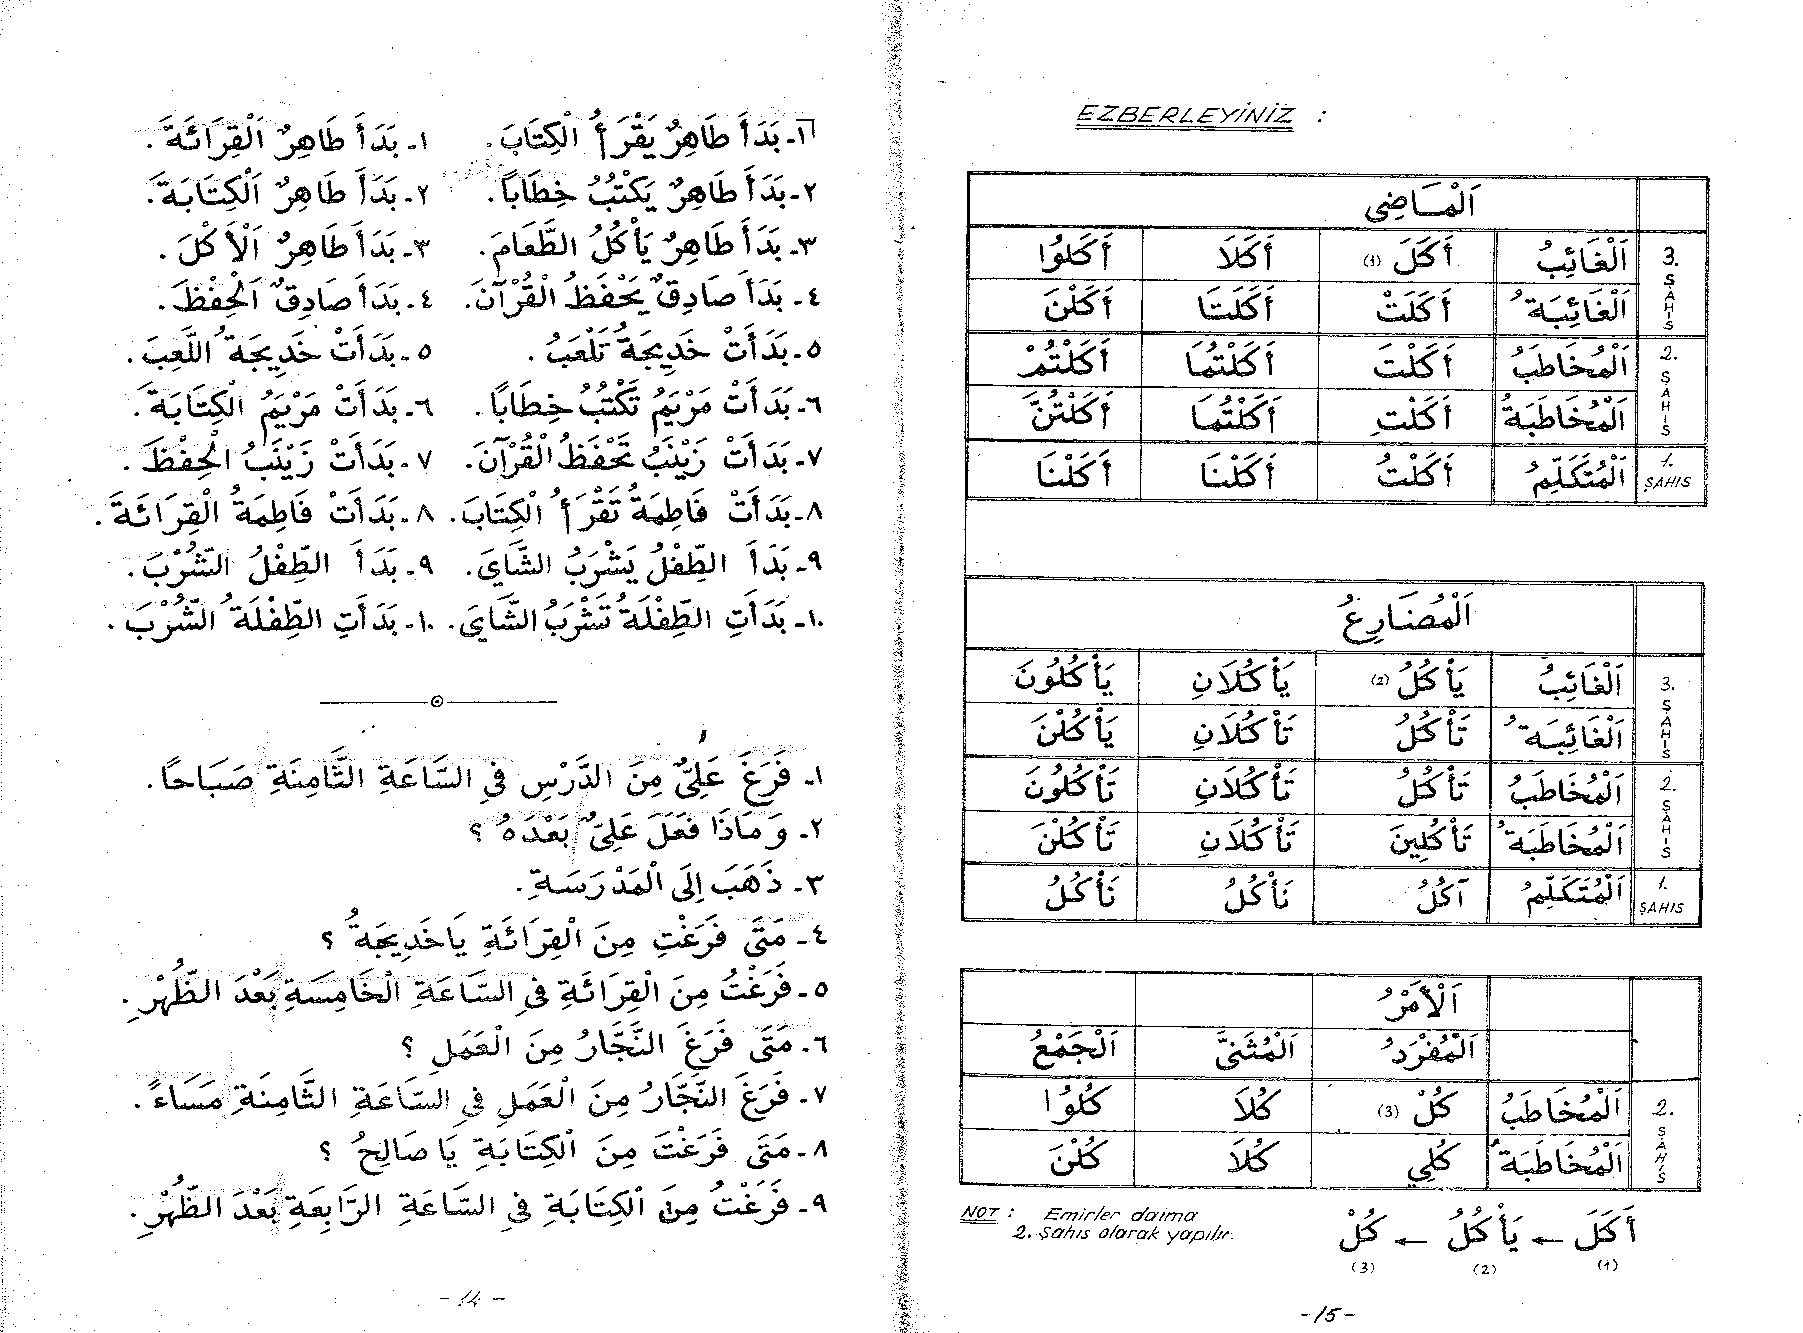 ١- بَدَأَ طَاهِرٌ يَقْرَأُ الْكِتَابَ. ١- بَدَأَ طَاهِرٌ اَلْقِرَائَةَ.
٢- بَدَأَ طَاهِرٌ يَكْتُبُ خِطَاباً. ٢- بَدَأَ طَاهِرٌ اَلْكِتَابَةَ.
٣- بَدَأَ طَاهِرٌ يَأْكُلُ الطَّعَامَ. ٣- بَدَأَ طَاهِرٌ اَلْأَكْلَ.
٤- بَدَأَ صَادِقٌ يَحْفَظُ الْقُرْآنَ. ٤- بَدَأَ صَادِقٌ اَلْحِفْظَ.
٥- بَدَأَتْ خَدِيجَةُ تَلْعَبُ. ٥- بَدَأَتْ خَدِيجَةُ اللَّعِبَ.
٦- بَدَأَتْ مَرْيَمُ تَكْتُبُ خِطَابًا. ٦- بَدَأَتْ مَرْيَمُ الْكِتَابَةَ.
٧- بَدَأَتْ زَيْنَبُ تَحْفَظُ الْقُرْآنَ. ٧- بَدَأَتْ زَيْنَبُ الْحِفْظَ.
٨- بَدَأَتْ فَاطِمَةُ تَقْرَأُ الْكِتَابَ. ٨- بَدَأَتْ فَاطِمَةُ الْقِرَائَةَ.
٩- بَدَأَ الطِّفْلُ يَشْرَبُ الشَّايَ. ٩- بَدَأَ الطِّفْلُ الشُّرْبَ.
١٠- بَدَأَتِ الطِّفْلَةُ تَشْرَبُ الشَّايَ. ١٠- بَدَأَتِ الطِّفْلَةُ الشُّرْبَ.
١- فَرَغَ عَلِيٌّ مِنَ الدَّرْسِ فِي السَّاعَةِ الثَّامِنَةِ صَبَاحًا.
٢- وَمَاذَا فَعَلَ عَلِيٌّ بَعْدَهُ ؟
٣- ذَهَبَ إِلَى الْمَدْرَسَةِ.
٤- مَتَى فَرَغْتِ مِنَ الْقِرَائَةِ يَا خَدِيجَةُ ؟
٥- فَرَغْتُ مِنَ الْقِرَائَةِ فِي السَّاعَةِ الْخَامِسَةِ بَعْدَ الظُّهْرِ.
٦- مَتَى فَرَغَ النَّجَّارُ مِنَ الْعَمَلِ ؟
٧- فَرَغَ النَّجَّارُ مِنَ الْعَمَلِ فِي السَّاعَةِ الثَّامِنَةِ مَسَاءً.
٨- مَتَى فَرَغْتَ مِنَ الْكِتَابَةِ يَا صَالِحُ ؟
٩- فَرَغْتُ مِنَ الْكِتَابَةِ فِي السَّاعَةِ الرَّابِعَةِ بَعْدَ الظُّهْرِ.
- 14 -
EZBERLEYİNİZ :
اَلْمَاضِي
3. ŞAHIS اَلْغَائِبُ أَكَلَ (1) أَكَلَا أَكَلُوا
اَلْغَائِبَةُ أَكَلَتْ أَكَلَتَا أَكَلْنَ
2. ŞAHIS اَلْمُخَاطَبُ أَكَلْتَ أَكَلْتُمَا أَكَلْتُمْ
اَلْمُخَاطَبَةُ أَكَلْتِ أَكَلْتُمَا أَكَلْتُنَّ
1. ŞAHIS اَلْمُتَكَلِّمُ أَكَلْتُ أَكَلْنَا أَكَلْنَا
اَلْمُضَارِعُ
3. ŞAHIS اَلْغَائِبُ يَأْكُلُ (2) يَأْكُلَانِ يَأْكُلُونَ
اَلْغَائِبَةُ تَأْكُلُ تَأْكُلَانِ يَأْكُلْنَ
2. ŞAHIS اَلْمُخَاطَبُ تَأْكُلُ تَأْكُلَانِ تَأْكُلُونَ
اَلْمُخَاطَبَةُ تَأْكُلِينَ تَأْكُلَانِ تَأْكُلْنَ
1. ŞAHIS اَلْمُتَكَلِّمُ آكُلُ نَأْكُلُ نَأْكُلُ
اَلْأَمْرُ
اَلْمُفْرَدُ اَلْمُثَنَّى اَلْجَمْعُ
2. ŞAHIS اَلْمُخَاطَبُ كُلْ (3) كُلَا كُلُوا
اَلْمُخَاطَبَةُ كُلِي كُلَا كُلْنَ
NOT : Emirler daima
2. Şahıs olarak yapılır.
أَكَلَ ← يَأْكُلُ ← كُلْ
(1) (2) (3)
- 15 -